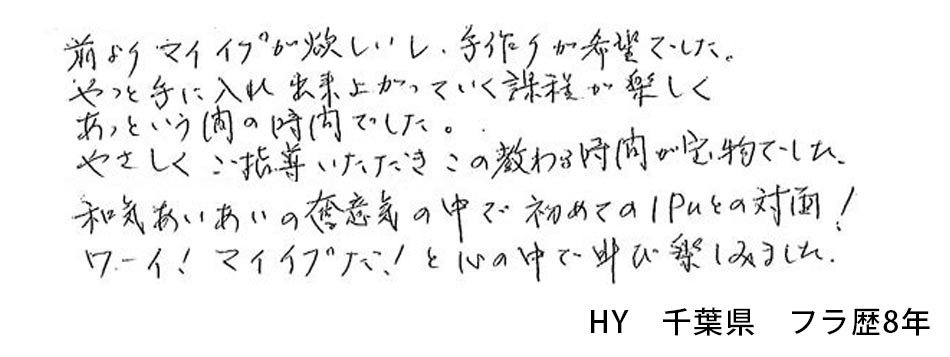 前よりマイイプが欲しいし、手作りが希望でした。
やっと手に入れ出来上がっていく課程が楽しく
あっという間の時間でした。
やさしくご指導いただきこの教わる時間が宝物でした。
和気あいあいの雰意気の中で初めてのIPuとの対面！
ワーイ！マイイプだ！と心の中で叫び楽しみました。
HY 千葉県 フラ歴8年